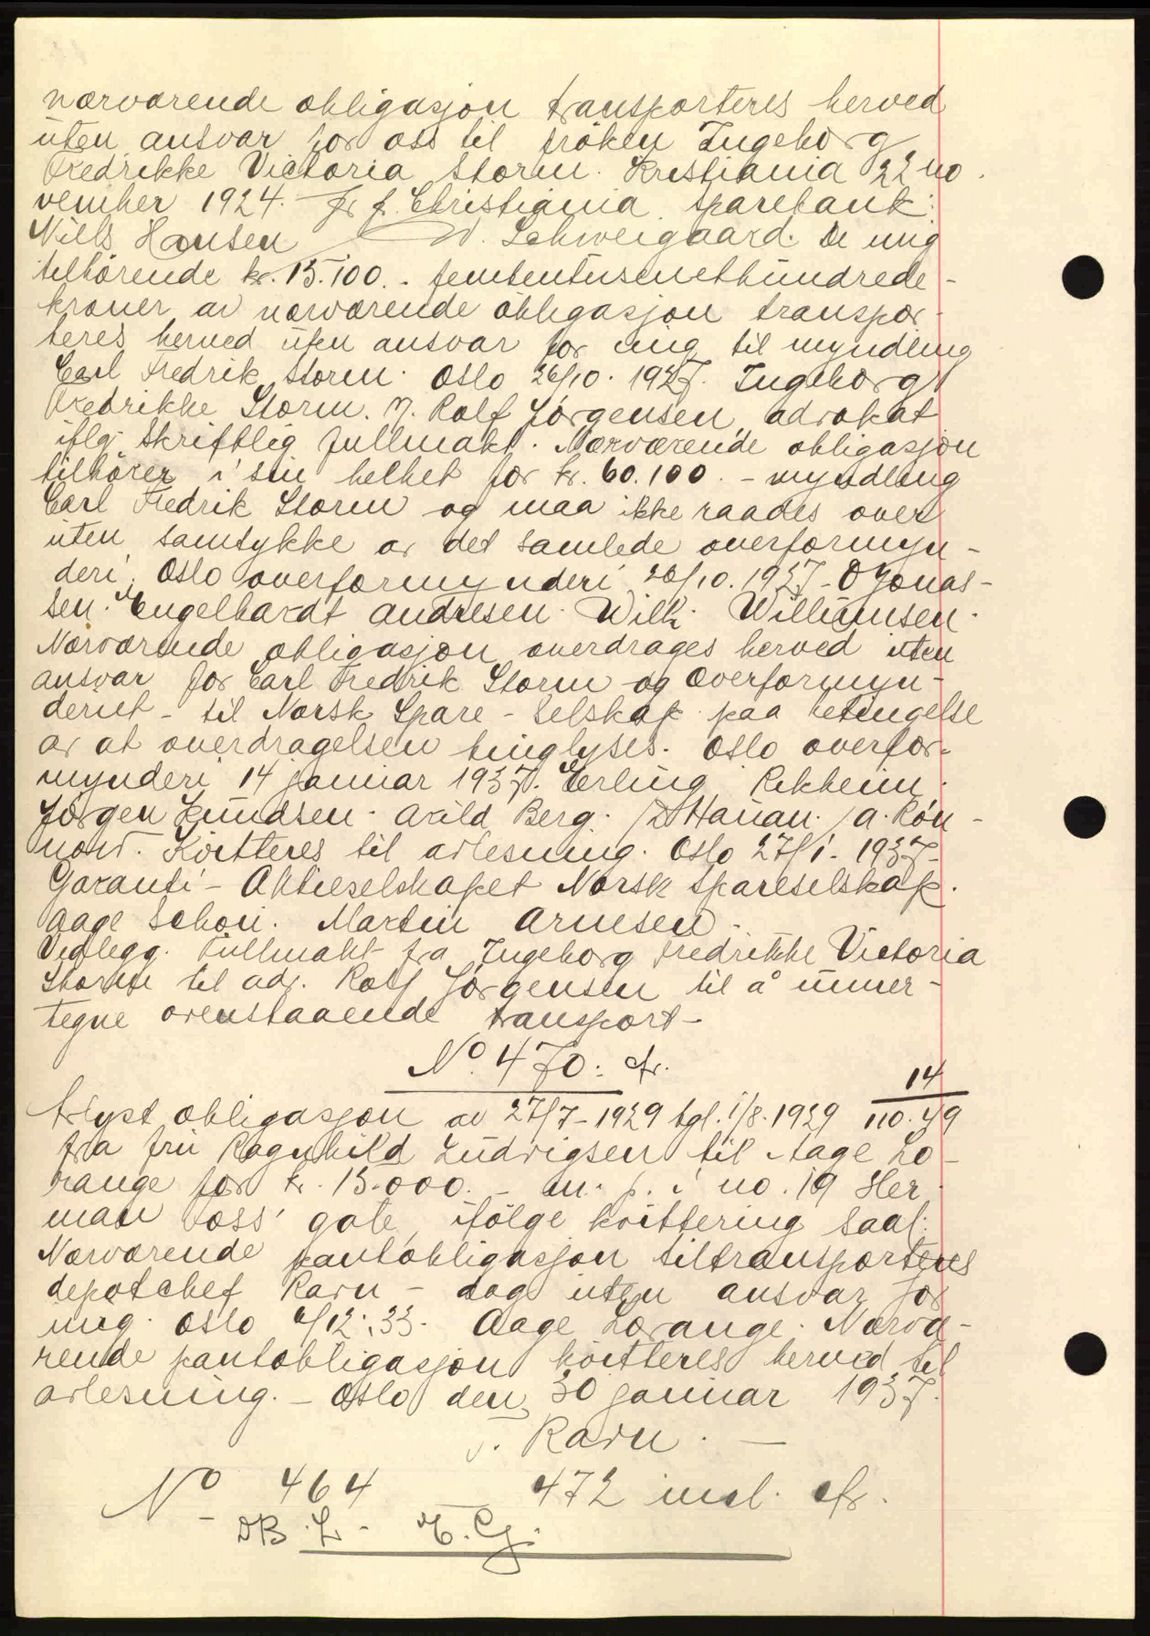 nærværende obligasjon transporteres herved
uten ansvar for oss til frøken Ingeborg
Fredrikke Victoria Storm. Kristiania 22 no
vember 1924. f. Christiania Sparebank:
Niels Hansen Schweigaard. De mig
tilhørende kr. 15.100.- femtentusenethundrede-
kroner av nærværende obligasjon transpor-
teres herved uten ansvar for mig til myndling
Carl Fredrik Storm. Oslo 26/10. 1927. Ingeborg
Fredrikke Storm. Rolf Jørgensen, advokat
iflg. skriftlig fullmakt. Nærværende obligasjon
tilhører i sin helhet for kr. 60.100.- myndling
Carl Fredrik Storm og maa ikke raades over
uten samtykke av det samlede overformyn-
deri, Oslo overformynderi 26/10. 1927- O Jonas-
sen. Engelhardt Andresen. Wilh. Williamsen.
Nærværende obligasjon overdrages herved uten
ansvar for Carl Fredrik Storm og Overformyn-
deriet - til Norsk Spare-Selskap paa betingelse
av at overdragelsen tinglyses. Oslo overfor-
mynderi 14 januar 1937. Erling Rikheim.
Jørgen Knudsen. Arild Berg. Hauan. A. Røn-
nord. Kvitteres til avlesning. Oslo 27/1- 1937-
Garanti- Aktieselskapet Norsk Spareselskap.
Aage Schou. Martin Arnesen.
Vedlegg. Fullmakt fra Ingeborg Fredrikke Victoria
Storm til adv. Rolf Jørgensen til å unner-
tegne ovenstaaende transport-
No. 470: fr.
14
Avlyst obligasjon av 27/7-1929 tgl. 1/8.1929 110.49
fra fru Ragnhild Ludvigsen til Aage Lo-
range for kr. 15.000.- m. p. i no. 19 Her
man Foss' gate, ifølge kvittering saal:
Nærværende pantobligasjon tiltransporteres
depotchef Ravn - dog uten ansvar for
mig. Oslo /12.33. Aage Lorange. Nærvæ-
rende pantobligasjon kvitteres herved til
avlesning.- Oslo den 30 januar 1937.
Ravn.-
No 464 - 472 incl. fr.
DB. L- E. G.